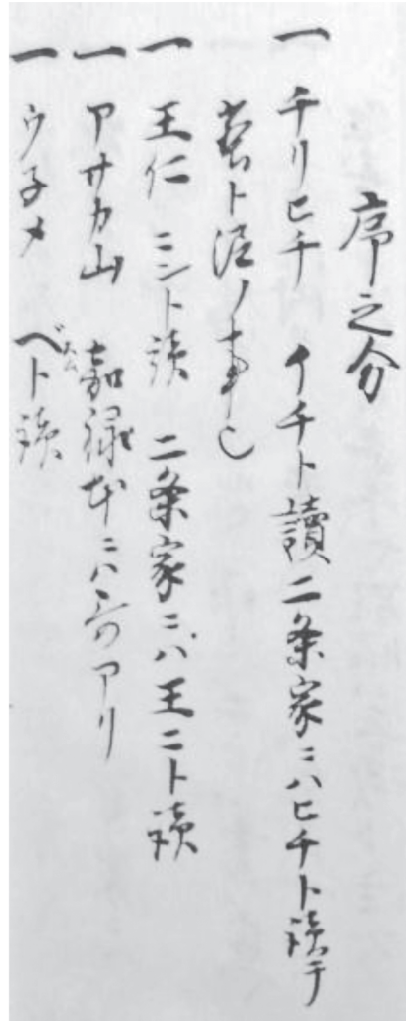 序之分
一 チリヒチ イチト讀二条家ニハヒチト讀テ
ト泥ノ事也
一 王仁 ニント讀 二条家ニハ王ニト讀
一 アサカ山 嘉禄本ニハ哥アリ
一 ウネメ ベト讀